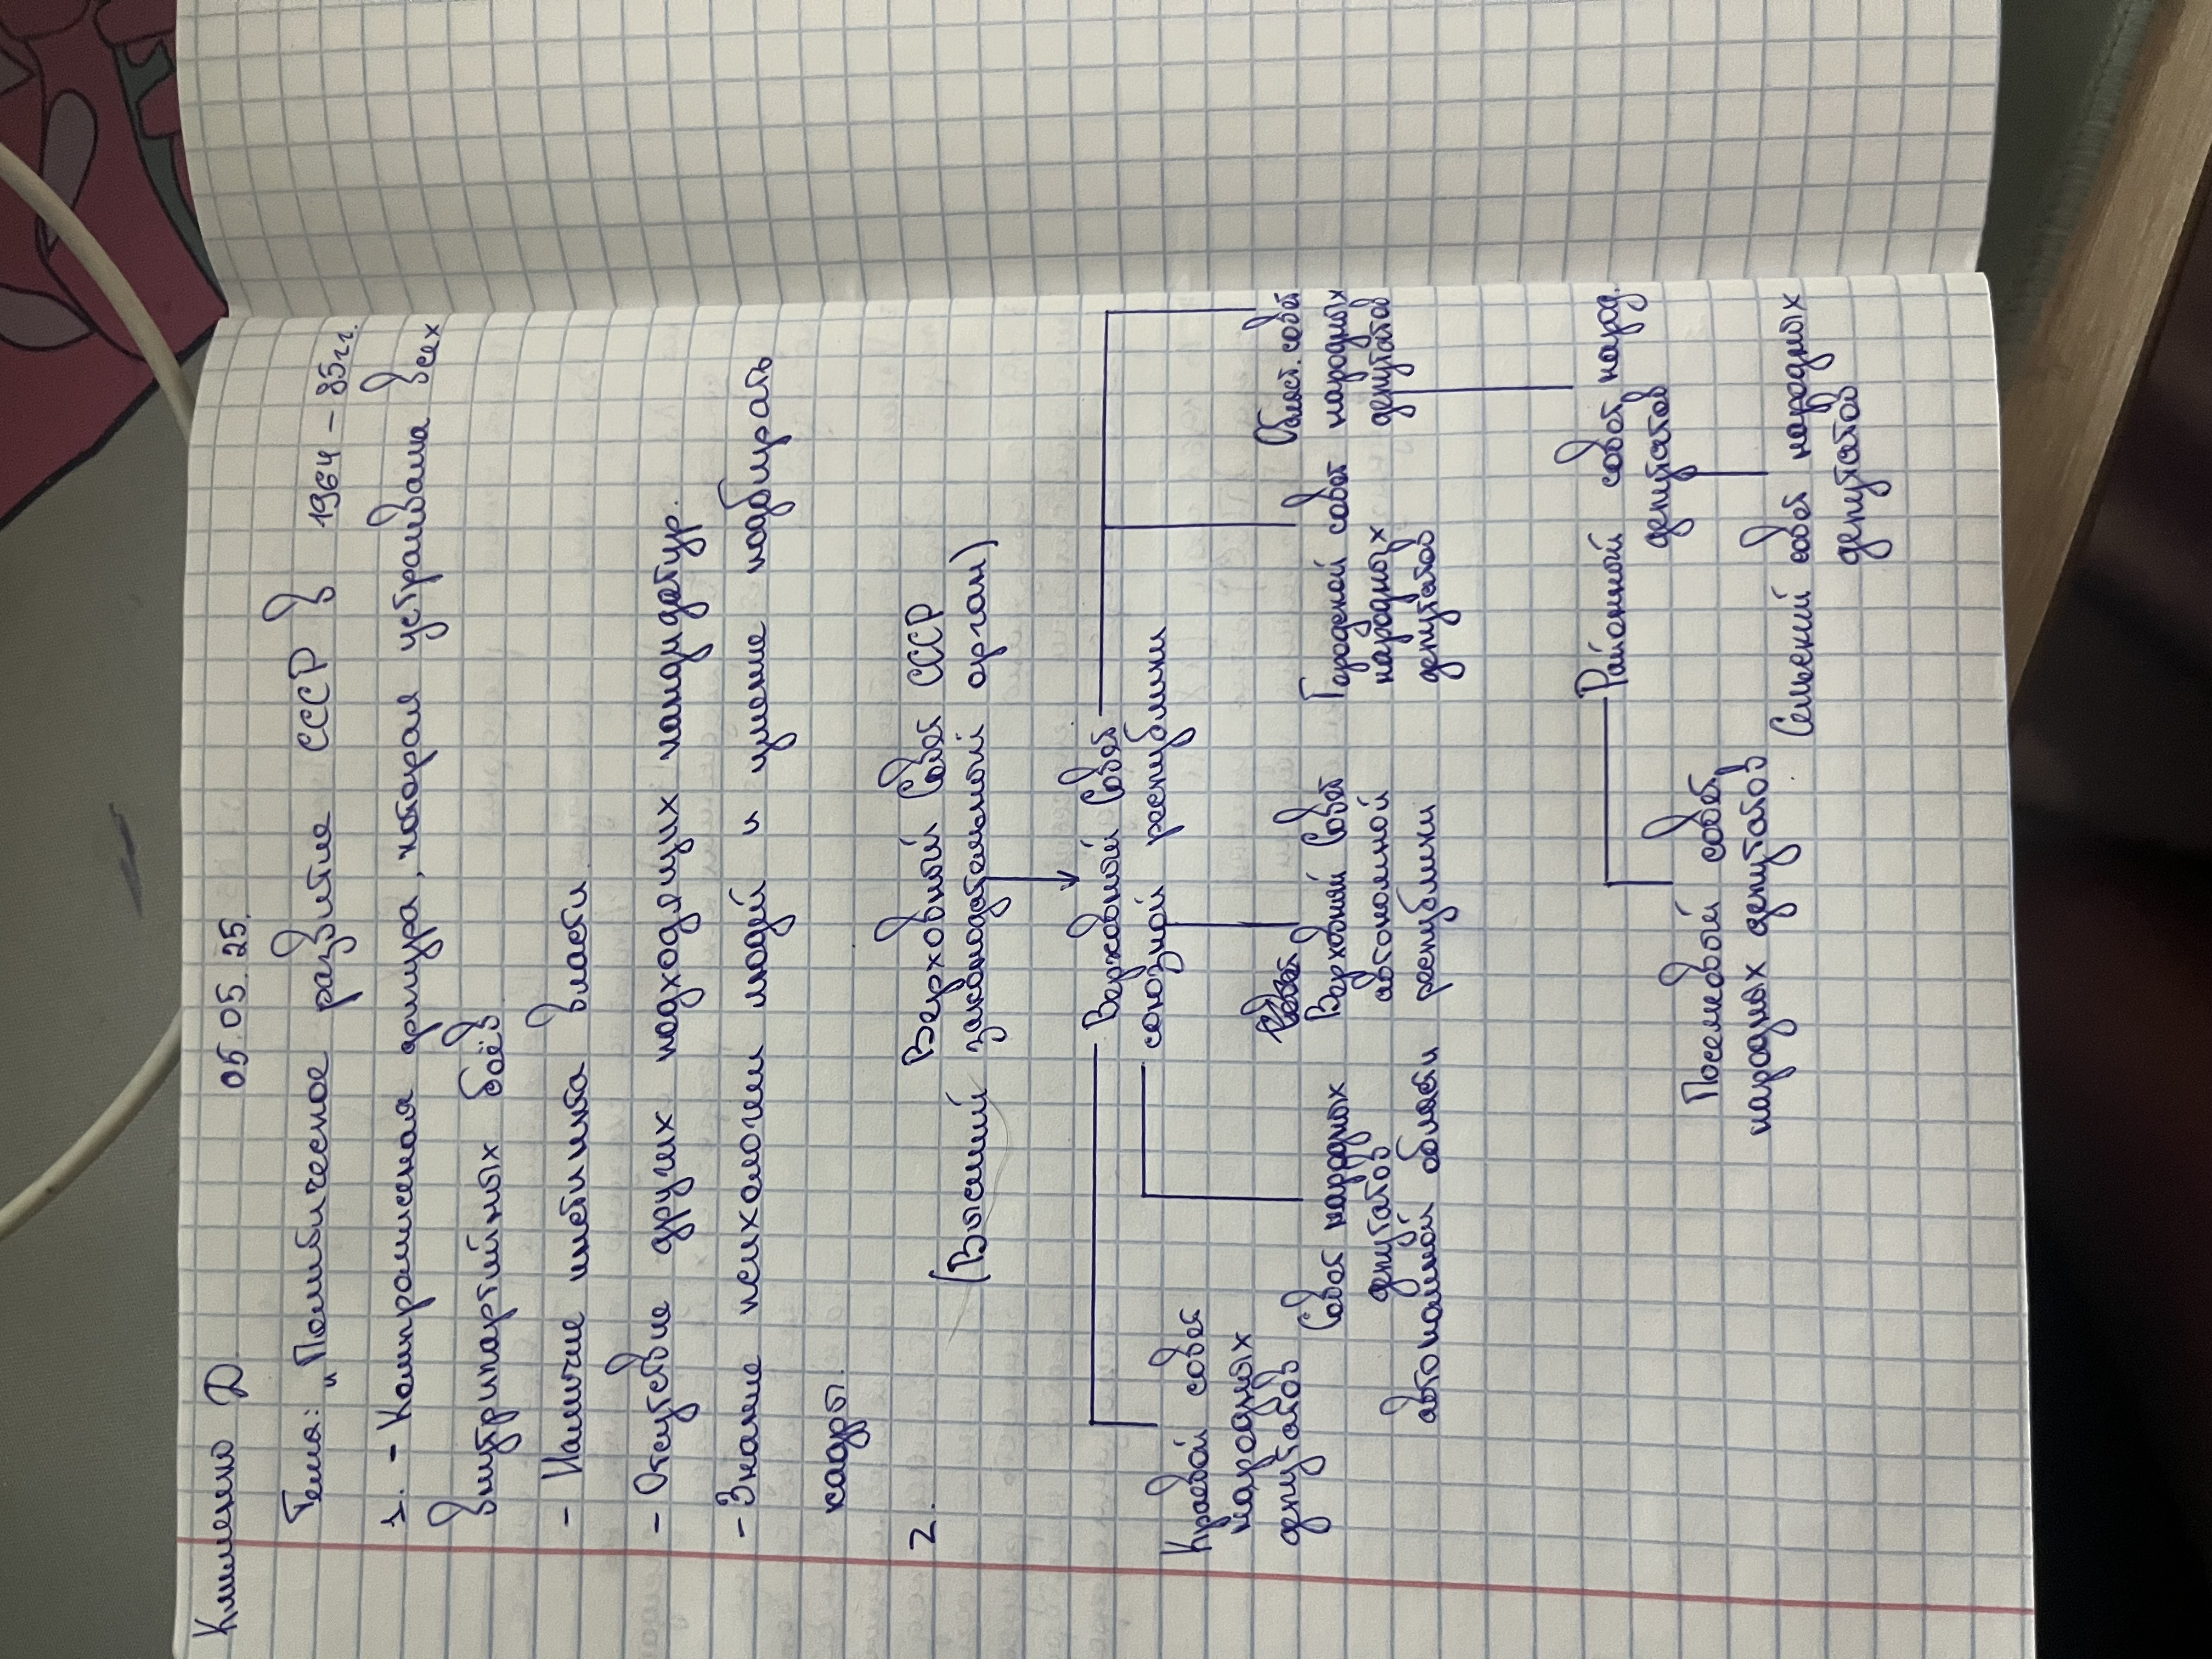 Клименко Д. 05.05.25.
Тема: "Политическое развитие СССР в 1964 – 85гг.
1. - Компромисная фигура, которая устраивала всех
внутрипартийных боёв.
- Наличие инстинкта власти
- Отсутствие других подходящих кандидатур.
- Знание психологии людей и умение подбирать
кадры.
2. Верховный Совет СССР
(Высший законодательный орган)
Верховный Совет
союзной республики
Краевой совет
народных
депутатов
Совет народных
депутатов
автономной области
Верховный Совет
автономной
республики
Городской совет
народных
депутатов
Област. совет
народных
депутатов
Районный совет народ.
депутатов
Поселковый совет
народных депутатов
Сельский совет народных
депутатов